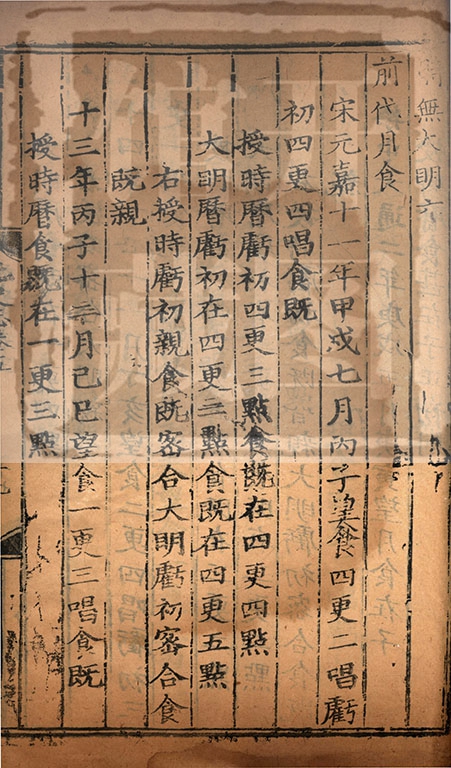 無大明六
前代月食
宋元嘉十一年甲戌七月丙子望食四更二唱虧
初四更四唱食既
授時曆虧初四更三點食既在四更四點
大明曆虧初在四更二點食既在四更五點
右授時虧初親食既密合大明虧初密合食
既親
十三年丙子十二月己巳望食一更三唱食既
授時曆食既在一更三點